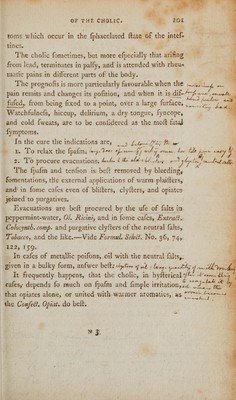 OF THE CHOLIC. 101
toms which occur in the sphacelated state of the intes-
tines.
The cholic sometimes, but more especially that arising
from lead, terminates in palsy, and is attended with rheu-
matic pains in different parts of the body.
The prognosis is more particularly favourable when the
pain remits and changes its position, and when it is dif-
fused, from being fixed to a point, over a large surface.
Watchfulness, hiccup, delirium, a dry tongue, syncope,
and cold sweats, are to be considered as the most fatal
symptoms.
In the cure the indications are,
1. To relax the spasm.
2. To procure evacuations.
The spasm and tension is best removed by bleeding,
fomentations, the external applications of warm plaisters,
and in some cases even of blisters, clysters, and opiates
joined to purgatives.
Evacuations are best procured by the use of salts in
peppermint-water, Ol. Ricini, and in some cases, Extract.
Colocynth. comp. and purgative clysters of the neutral salts,
Tobacco, and the like.—Vide Formul. Select. No. 36, 74,
122, 159.
In cases of metallic poisons, oil with the neutral salts,
given in a bulky form, answer best:
It frequently happens, that the cholic, in hysterical
cases, depends so much on spasm and simple irritation,
that opiates alone, or united with warmer aromatics, as
the Confect. Opiat. do best.
3.